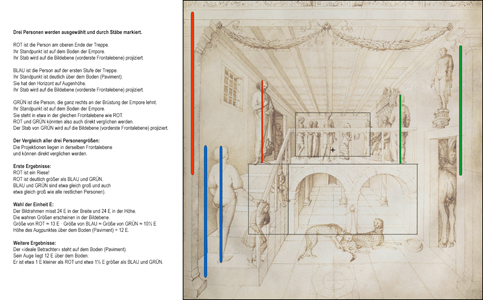 Drei Personen werden ausgewählt und durch Stäbe markiert.
ROT ist die Person am oberen Ende der Treppe.
Ihr Standpunkt ist auf dem Boden der Empore.
Ihr Stab wird auf die Bildebene (vorderste Frontalebene) projiziert.
BLAU ist die Person auf der ersten Stufe der Treppe.
Ihr Standpunkt ist deutlich über dem Boden (Paviment).
Sie hat den Horizont auf Augenhöhe.
Ihr Stab wird auf die Bildebene (vorderste Frontalebene) projiziert.
GRÜN ist die Person, die ganz rechts an der Brüstung der Empore lehnt.
Ihr Standpunkt ist auf dem Boden der Empore.
Sie steht in etwa in der gleichen Frontalebene wie ROT.
ROT und GRÜN könnten also auch direkt verglichen werden.
Der Stab von GRÜN wird auf die Bildebene (vorderste Frontalebene) projiziert.
Der Vergleich aller drei Personengrößen:
Die Projektionen liegen in derselben Frontalebene
und können direkt verglichen werden.
Erste Ergebnisse:
ROT ist ein Riese!
ROT ist deutlich größer als BLAU und GRÜN.
BLAU und GRÜN sind etwa gleich groß und auch
etwa gleich groß wie alle restlichen Personen).
Wahl der Einheit E:
Der Bildrahmen misst 24 E in der Breite und 24 E in der Höhe.
Die wahren Größen erscheinen in der Bildebene.
Größe von ROT = 13 E · Größe von BLAU = Größe von GRÜN = 10½ E
Höhe des Augpunktes über dem Boden (Paviment) = 12 E.
Weitere Ergebnisse:
Der <ideale Betrachter> steht auf dem Boden (Paviment).
Sein Auge liegt 12 E über dem Boden.
Er ist etwa 1 E kleiner als ROT und etwa 1½ E größer als BLAU und GRÜN.